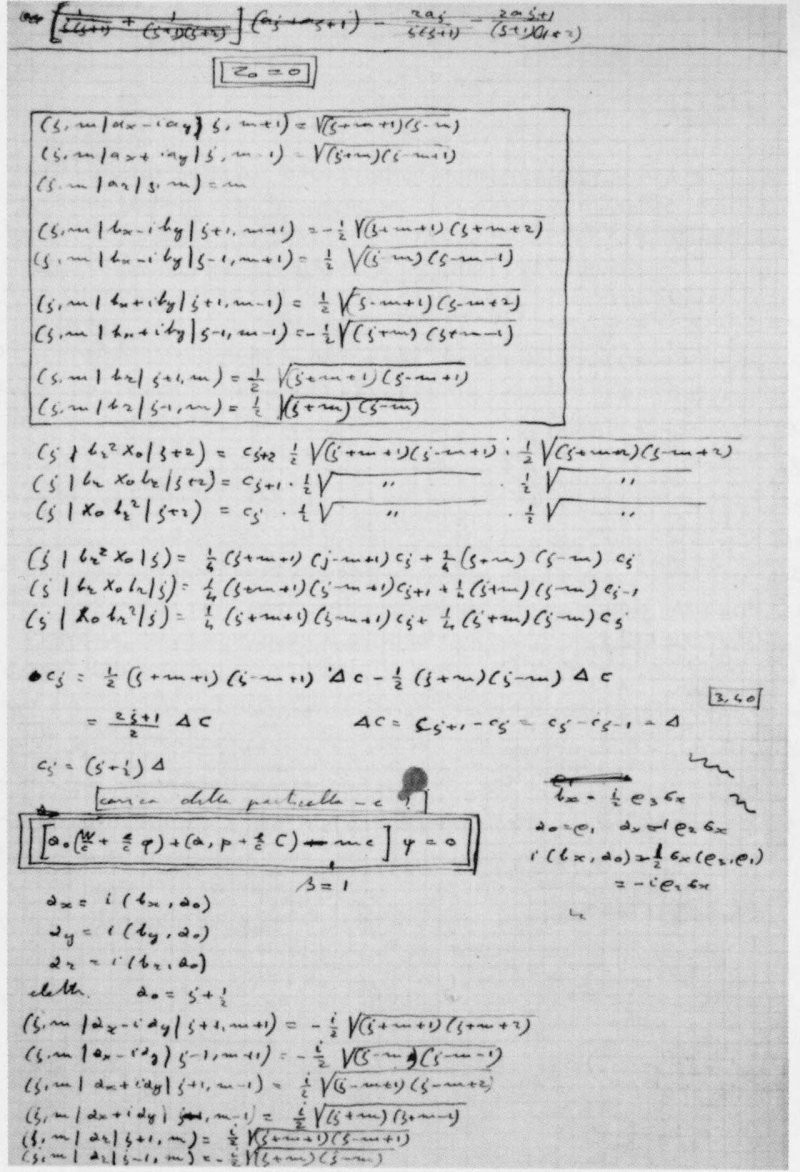 [1/(j(j+1)) + 1/((j+1)(j+2))] (aj + aj+1) − 2aj/(j(j+1)) − 2aj+1/((j+1)(j+2))
Z₀ = 0
(j, m | ax − i ay | j, m+1) = √(j+m+1)(j−m)
(j, m | ax + i ay | j, m−1) = √(j+m)(j−m+1)
(j, m | az | j, m) = m
(j, m | bx − i by | j+1, m+1) = −½ √(j+m+1)(j+m+2)
(j, m | bx − i by | j−1, m+1) = ½ √(j−m)(j−m−1)
(j, m | bx + i by | j+1, m−1) = ½ √(j−m+1)(j−m+2)
(j, m | bx + i by | j−1, m−1) = −½ √(j+m)(j+m−1)
(j, m | bz | j+1, m) = ½ √(j+m+1)(j−m+1)
(j, m | bz | j−1, m) = ½ √(j+m)(j−m)
(j | bz² X₀ | j+2) = cj+2 ½ √(j+m+1)(j−m+1) · ½ √(j+m+2)(j−m+2)
(j | bz X₀ bz | j+2) = cj+1 · ½ √ " · ½ √ "
(j | X₀ bz² | j+2) = cj · ½ √ " · ½ √ "
(j | bz² X₀ | j) = ¼ (j+m+1)(j−m+1) cj + ¼ (j+m)(j−m) cj
(j | bz X₀ bz | j) = ¼ (j+m+1)(j−m+1) cj+1 + ¼ (j+m)(j−m) cj−1
(j | X₀ bz² | j) = ¼ (j+m+1)(j−m+1) cj + ¼ (j+m)(j−m) cj
cj = ½ (j+m+1)(j−m+1) Δc − ½ (j+m)(j−m) Δc
3.40
= (2j+1)/2 Δc Δc = cj+1 − cj = cj − cj−1 = Δ
cj = (j+½) Δ
carica della particella −e !
[α₀ (W/c + e/c φ) + (α, p + e/c C) − mc] ψ = 0
β = 1
bx = ½ ρ₃ σx
α₀ = ρ₁ αx = i ρ₂ σx
i (bx, α₀) = ½ σx (ρ₃, ρ₁)
= −i ρ₂ σx
αx = i (bx, α₀)
αy = i (by, α₀)
αz = i (bz, α₀)
α₀ = j + ½
(j, m | αx − i αy | j+1, m+1) = −i/2 √(j+m+1)(j+m+2)
(j, m | αx − i αy | j−1, m+1) = −i/2 √(j−m)(j−m−1)
(j, m | αx + i αy | j+1, m−1) = i/2 √(j−m+1)(j−m+2)
(j, m | αx + i αy | j−1, m−1) = i/2 √(j+m)(j+m−1)
(j, m | αz | j+1, m) = i/2 √(j+m+1)(j−m+1)
(j, m | αz | j−1, m) = −i/2 √(j+m)(j−m)